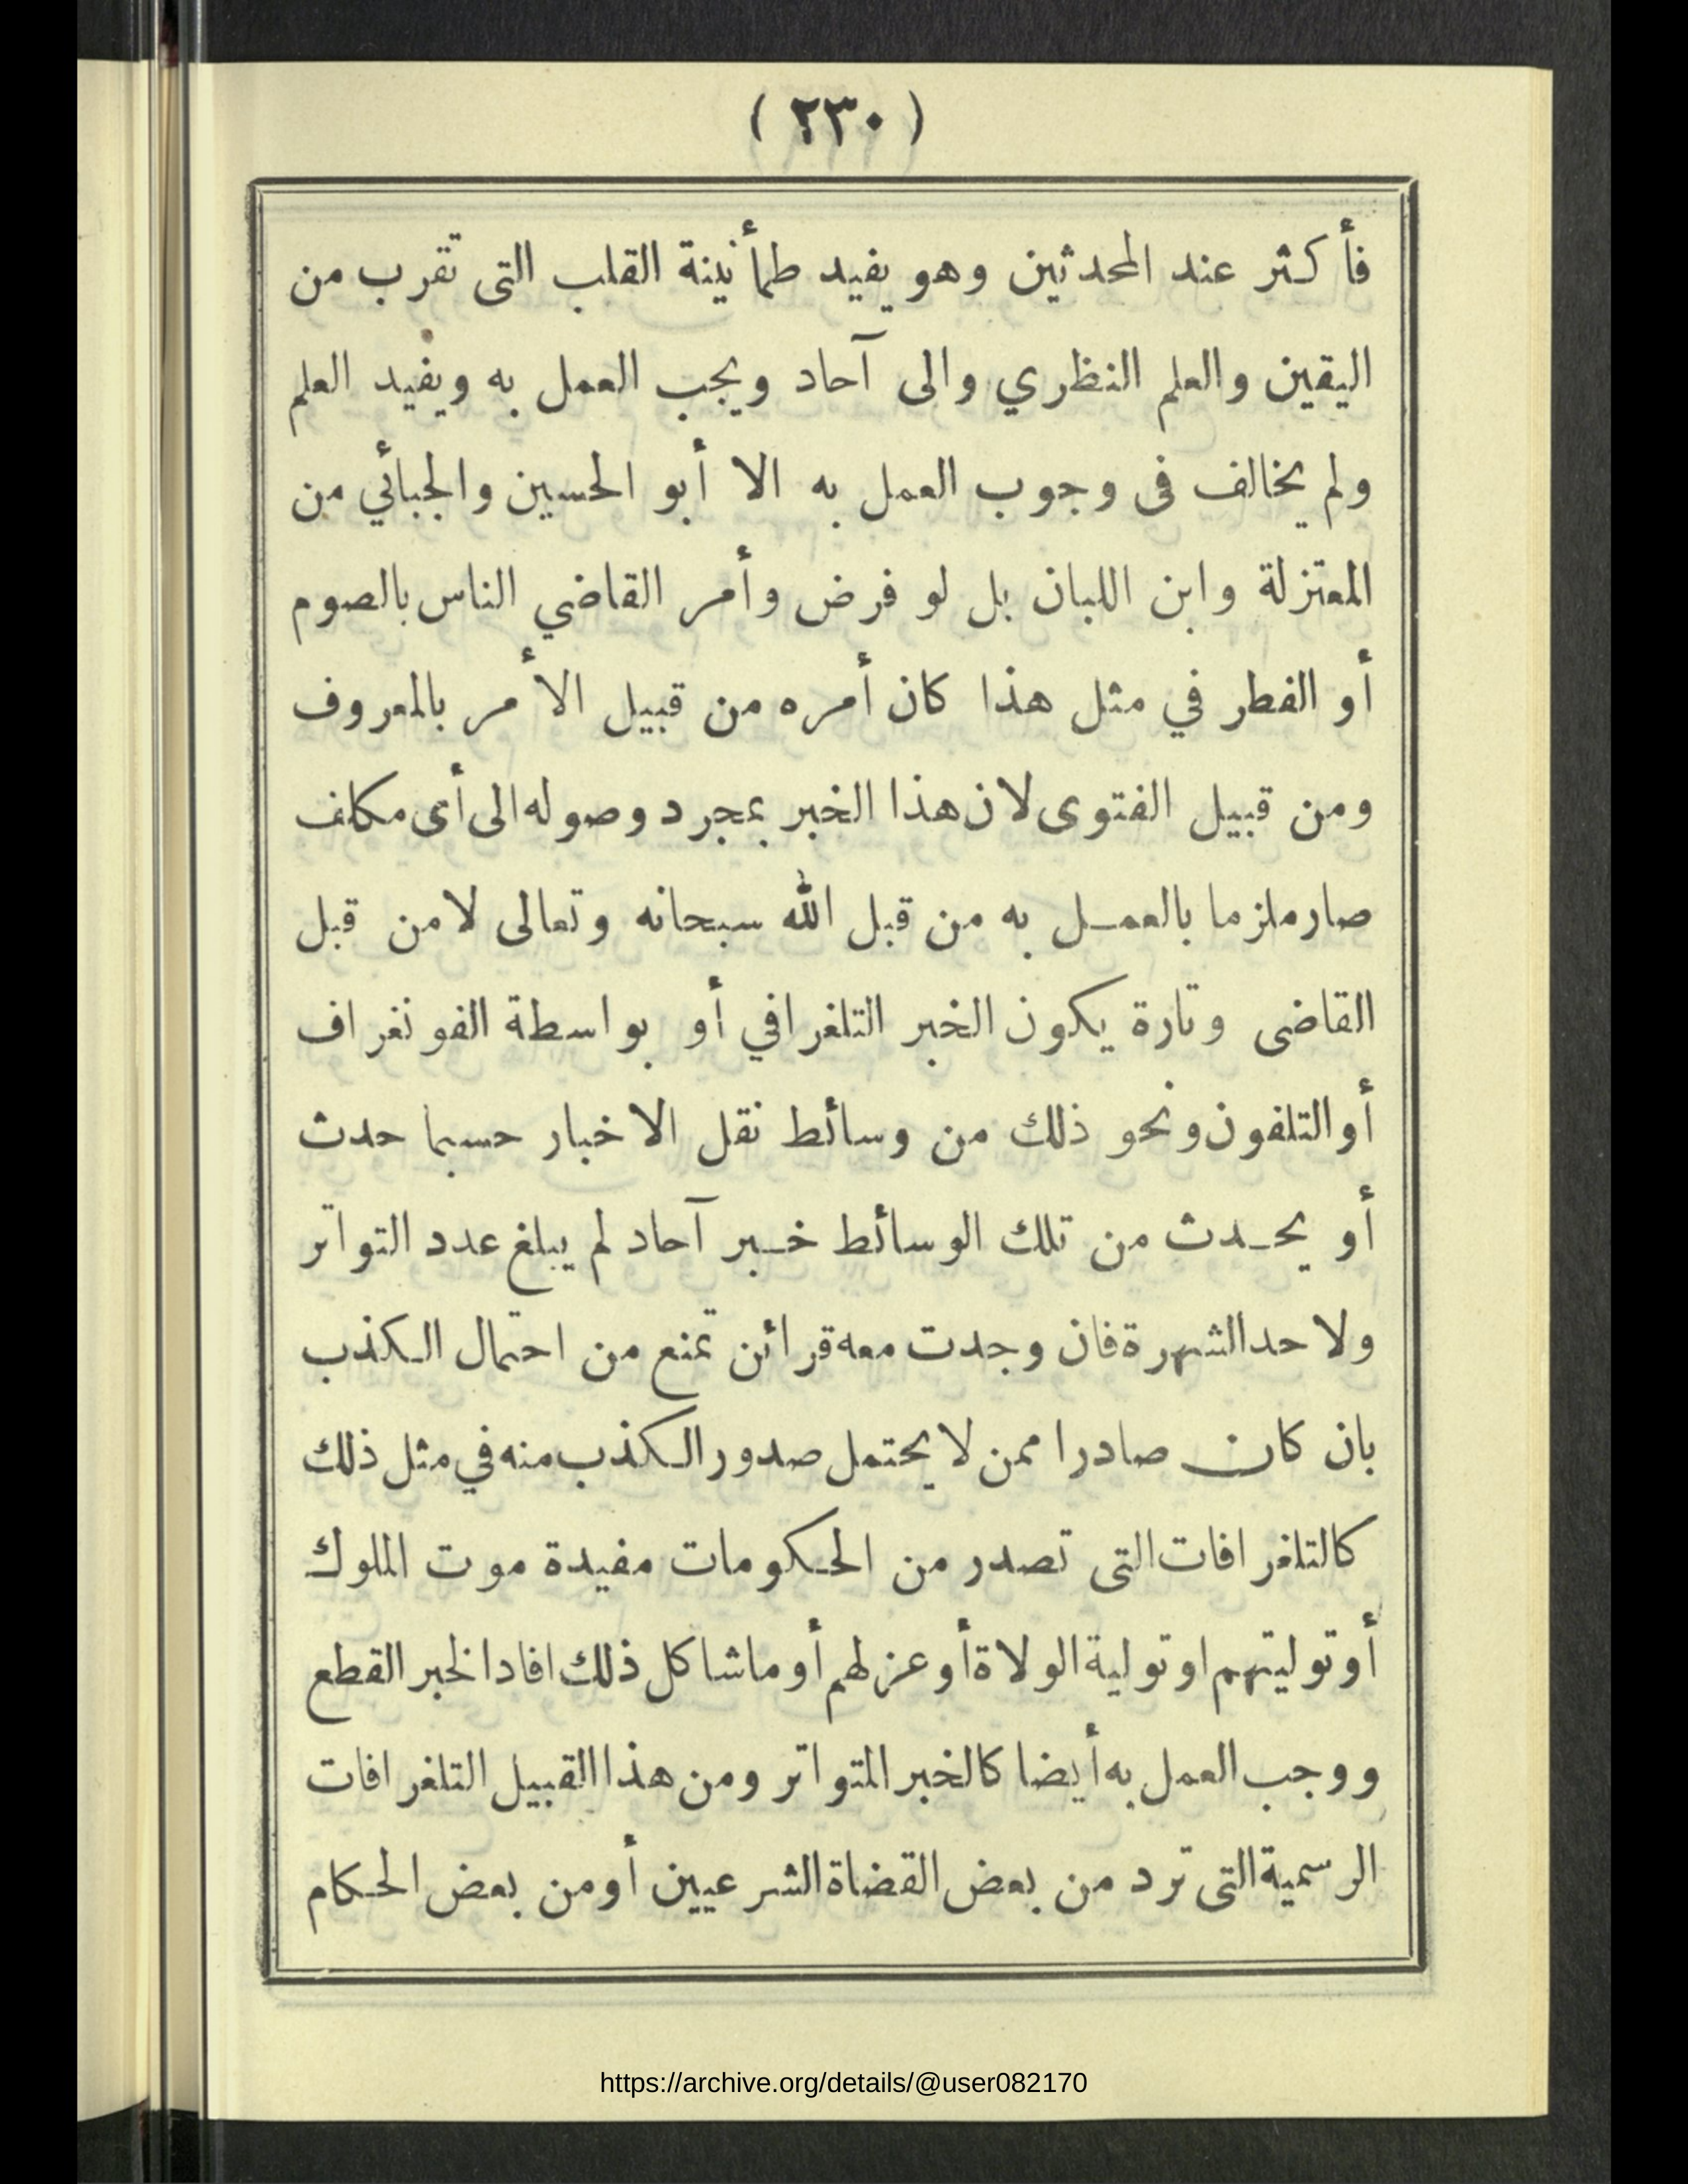 ( ٢٣٠ )
فأكثر عند المحدثين وهو يفيد طمأنينة القلب التى تقرب من
اليقين والعلم النظري والى آحاد ويجب العمل به ويفيد العلم
ولم يخالف فى وجوب العمل به الا أبو الحسين والجبائي من
المعتزلة وابن اللبان بل لو فرض وأمر القاضي الناس بالصوم
أو الفطر في مثل هذا كان أمره من قبيل الأمر بالمعروف
ومن قبيل الفتوى لان هذا الخبر بمجرد وصوله الى أى مكلف
صار ملزما بالعمل به من قبل الله سبحانه وتعالى لا من قبل
القاضى وتارة يكون الخبر التلغرافي أو بواسطة الفونغراف
أو التلفون ونحو ذلك من وسائط نقل الاخبار حسبما حدث
أو يحدث من تلك الوسائط خبر آحاد لم يبلغ عدد التواتر
ولا حد الشهرة فان وجدت معه قرائن تمنع من احتمال الكذب
بان كان صادرا ممن لا يحتمل صدور الكذب منه في مثل ذلك
كالتلغرافات التى تصدر من الحكومات مفيدة موت الملوك
أو توليتهم او تولية الولاة أو عزلهم أو ما شاكل ذلك افاد الخبر القطع
ووجب العمل به أيضا كالخبر المتواتر ومن هذا القبيل التلغرافات
الرسمية التى ترد من بعض القضاة الشرعيين أو من بعض الحكام
https://archive.org/details/@user082170